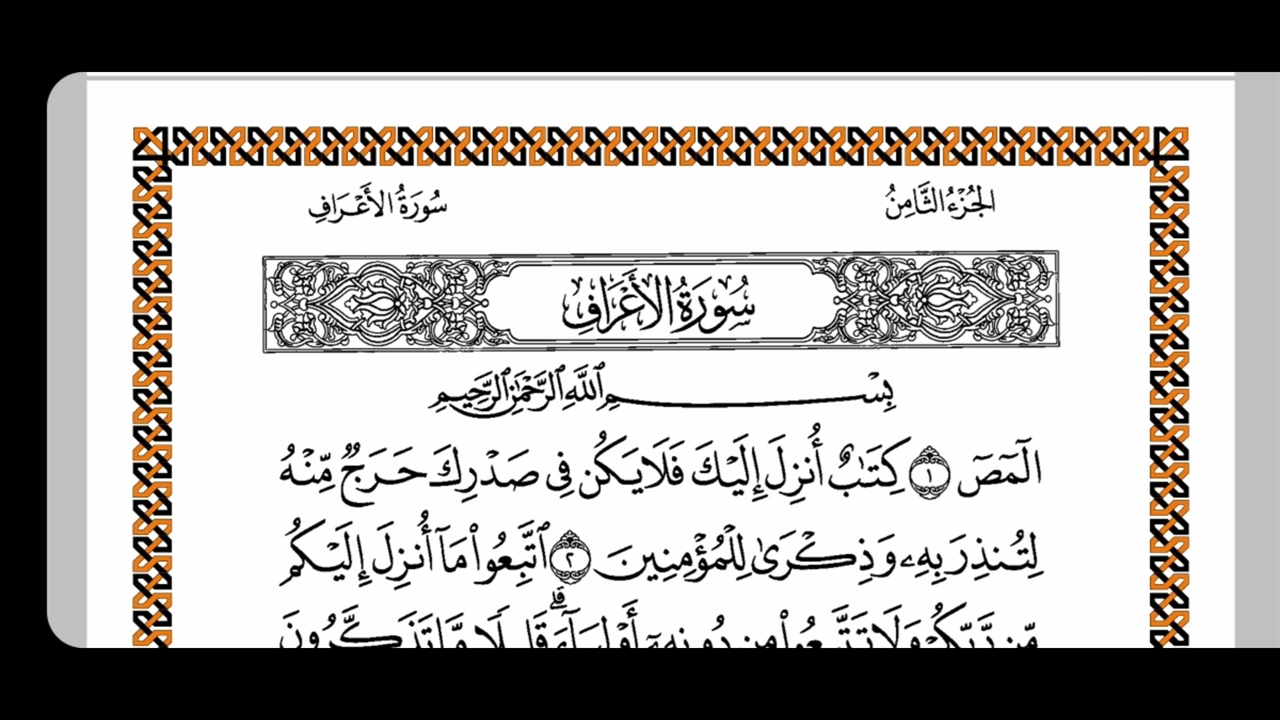 الجُزْءُ الثَّامِنُ
سُورَةُ الأَعْرَافِ
سُورَةُ الأَعْرَافِ
بِسْمِ ٱللَّهِ ٱلرَّحْمَٰنِ ٱلرَّحِيمِ
الٓمٓصٓ ١ كِتَٰبٌ أُنزِلَ إِلَيْكَ فَلَا يَكُن فِى صَدْرِكَ حَرَجٌ مِّنْهُ
لِتُنذِرَ بِهِۦ وَذِكْرَىٰ لِلْمُؤْمِنِينَ ٢ ٱتَّبِعُوا۟ مَآ أُنزِلَ إِلَيْكُم
مِّن رَّبِّكُمْ وَلَا تَتَّبِعُوا۟ مِن دُونِهِۦٓ أَوْلِيَآءَ ۗ قَلِيلًا مَّا تَذَكَّرُونَ